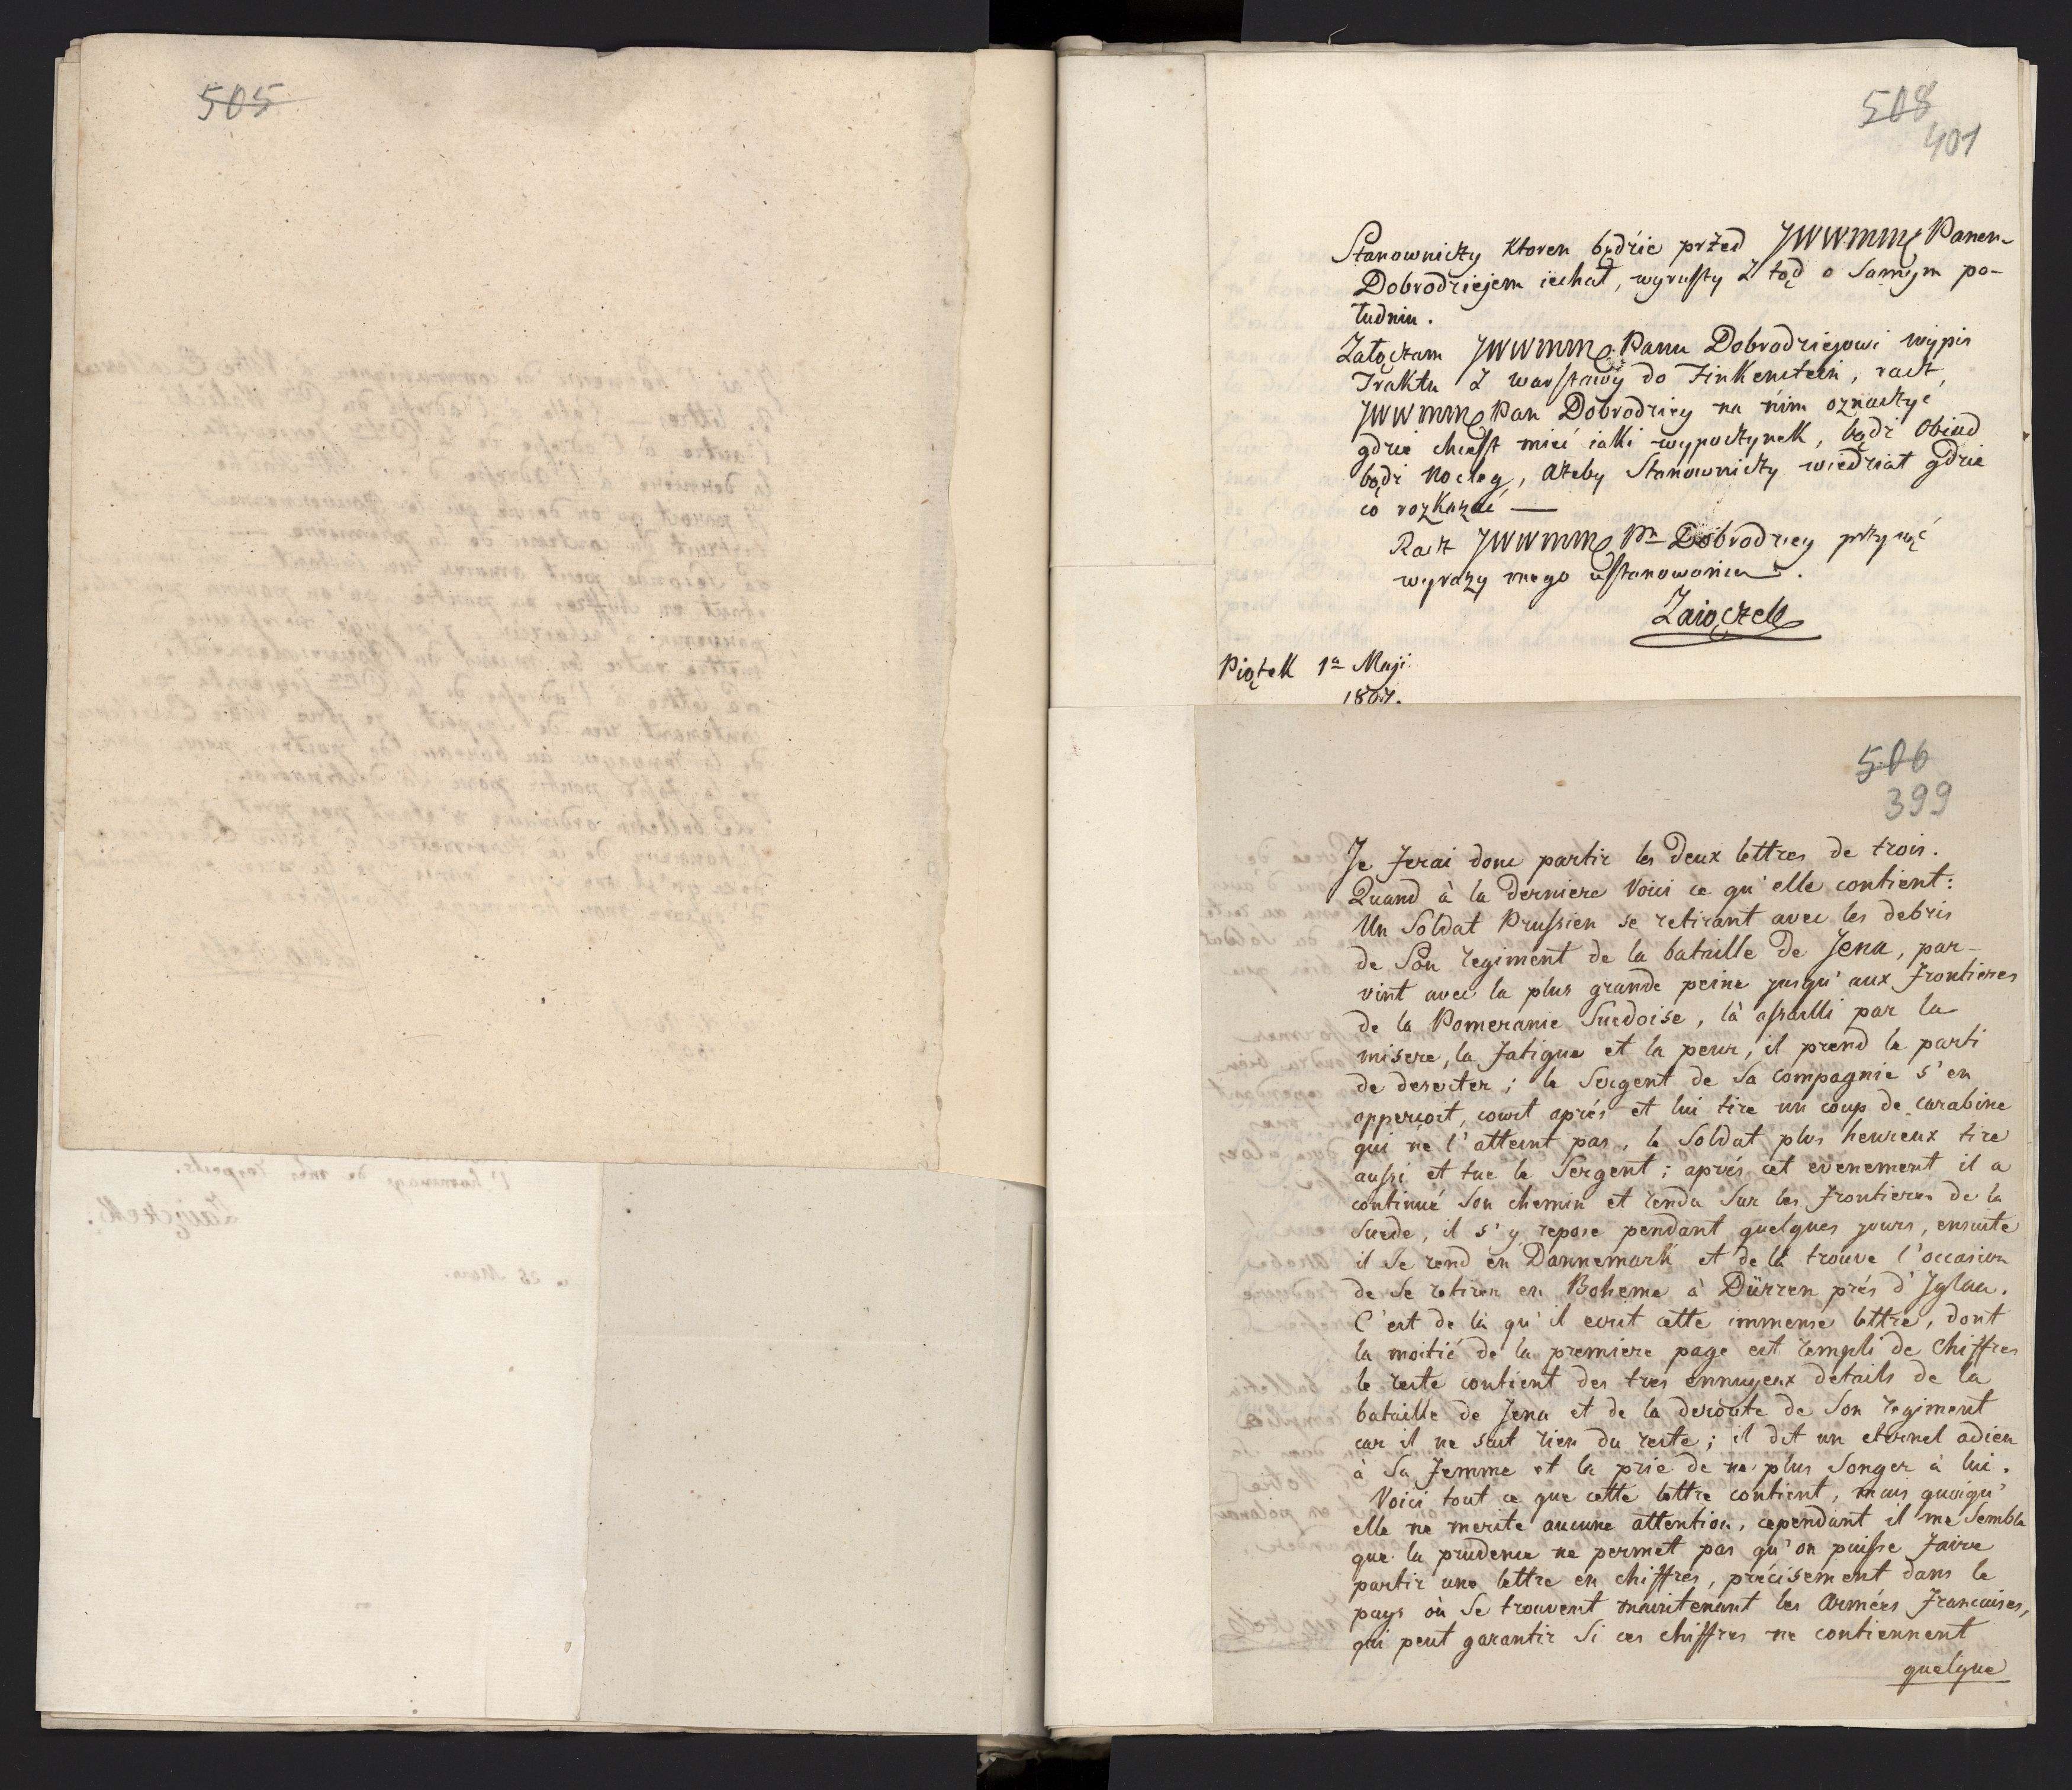 505
508
401
Stanowniczy ktoren będzie przed JWWMM Panem
Dobrodziejem iechał, wyruszy z tąd o samym po-
łudniu.
Załączam JWWMM Panu Dobrodziejowi wypis
Traktu z Warszawy do Finkenstein, racz,
JWWMM Pan Dobrodziey na nim oznaczyć
gdzie chcesz mieć iaki wypoczynek, bądź obiad
bądź nocleg, ażeby Stanowniczy wiedział gdzie
co rozkazać —
Racz JWWMM Pn Dobrodziey przyiąć
wyrazy mego uszanowania.
Zaiączek
Piątek 1a Maji
1807.
506
399
Je ferai donc partir les deux lettres de trois.
Quand à la derniere voici ce qu'elle contient:
Un Soldat Prussien se retirant avec les debris
de Son regiment de la bataille de Jena, par-
vint avec la plus grande peine jusqu'aux frontieres
de la Pomeranie Suedoise, là assailli par la
misere, la fatigue et la peur, il prend le parti
de deserter; le Sergent de Sa compagnie s'en
appercoit, court aprés et lui tire un coup de carabine
qui ne l'atteint pas, le Soldat plus heureux tire
aussi et tue le Sergent; aprés cet evenement il a
continué Son chemin et rendu Sur les frontieres de la
Suede, il s'y repose pendant quelques jours, ensuite
il Se rend en Dannemark et de là trouve l'occasion
de Se retirer en Boheme à Dürren prés d'Jglau.
C'est de là qu'il ecrit cette immense lettre, dont
la moitié de la premiere page est rempli de Chiffres
le reste contient des tres ennuyeux details de la
bataille de Jena et de la deroute de Son regiment
car il ne sait rien du reste; il dit un eternel adieu
à Sa femme et la prie de ne plus Songer à lui.
Voici tout ce que cette lettre contient, mais quoiqu'
elle ne merite aucune attention, cependant il me Semble
que la prudence ne permet pas qu'on puisse faire
partir une lettre en chiffres, précisement dans le
pays où Se trouvent maintenant les Armées francaises,
qui peut garantir Si ces chiffres ne contiennent
quelque